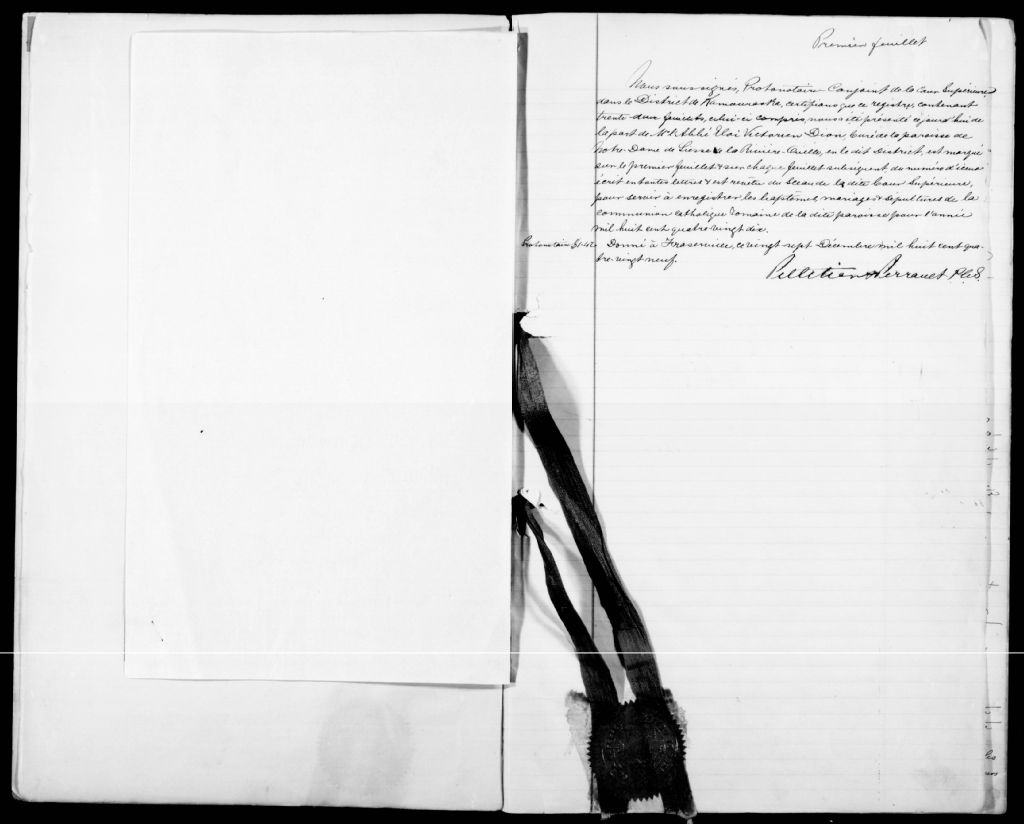 Premier feuillet
Nous soussignés, Protonotaire Conjoint de la Cour Supérieure
dans le District de Kamouraska, certifions que ce registre, contenant
trente deux feuillets, celui-ci compris, nous a été présenté ce jourd'hui de
la part de Mr l'Abbé Eloi Victorien Dion, Curé de la paroisse de
Notre-Dame de Liesse de la Rivière-Ouelle, en le dit District, est marqué
sur le premier feuillet & sur chaque feuillet subséquent du numéro d'iceux
écrit en toutes lettres & est revêtu du Sceau de la dite Cour Supérieure,
pour servir à enregistrer les baptêmes, mariages & sépultures de la
communion catholique romaine de la dite paroisse pour l'année
mil huit cent quatre-vingt dix.
Donné à Fraserville, ce vingt-sept Décembre mil huit cent qua-
tre-vingt neuf.
Pelletier & Perrault P.C.S.